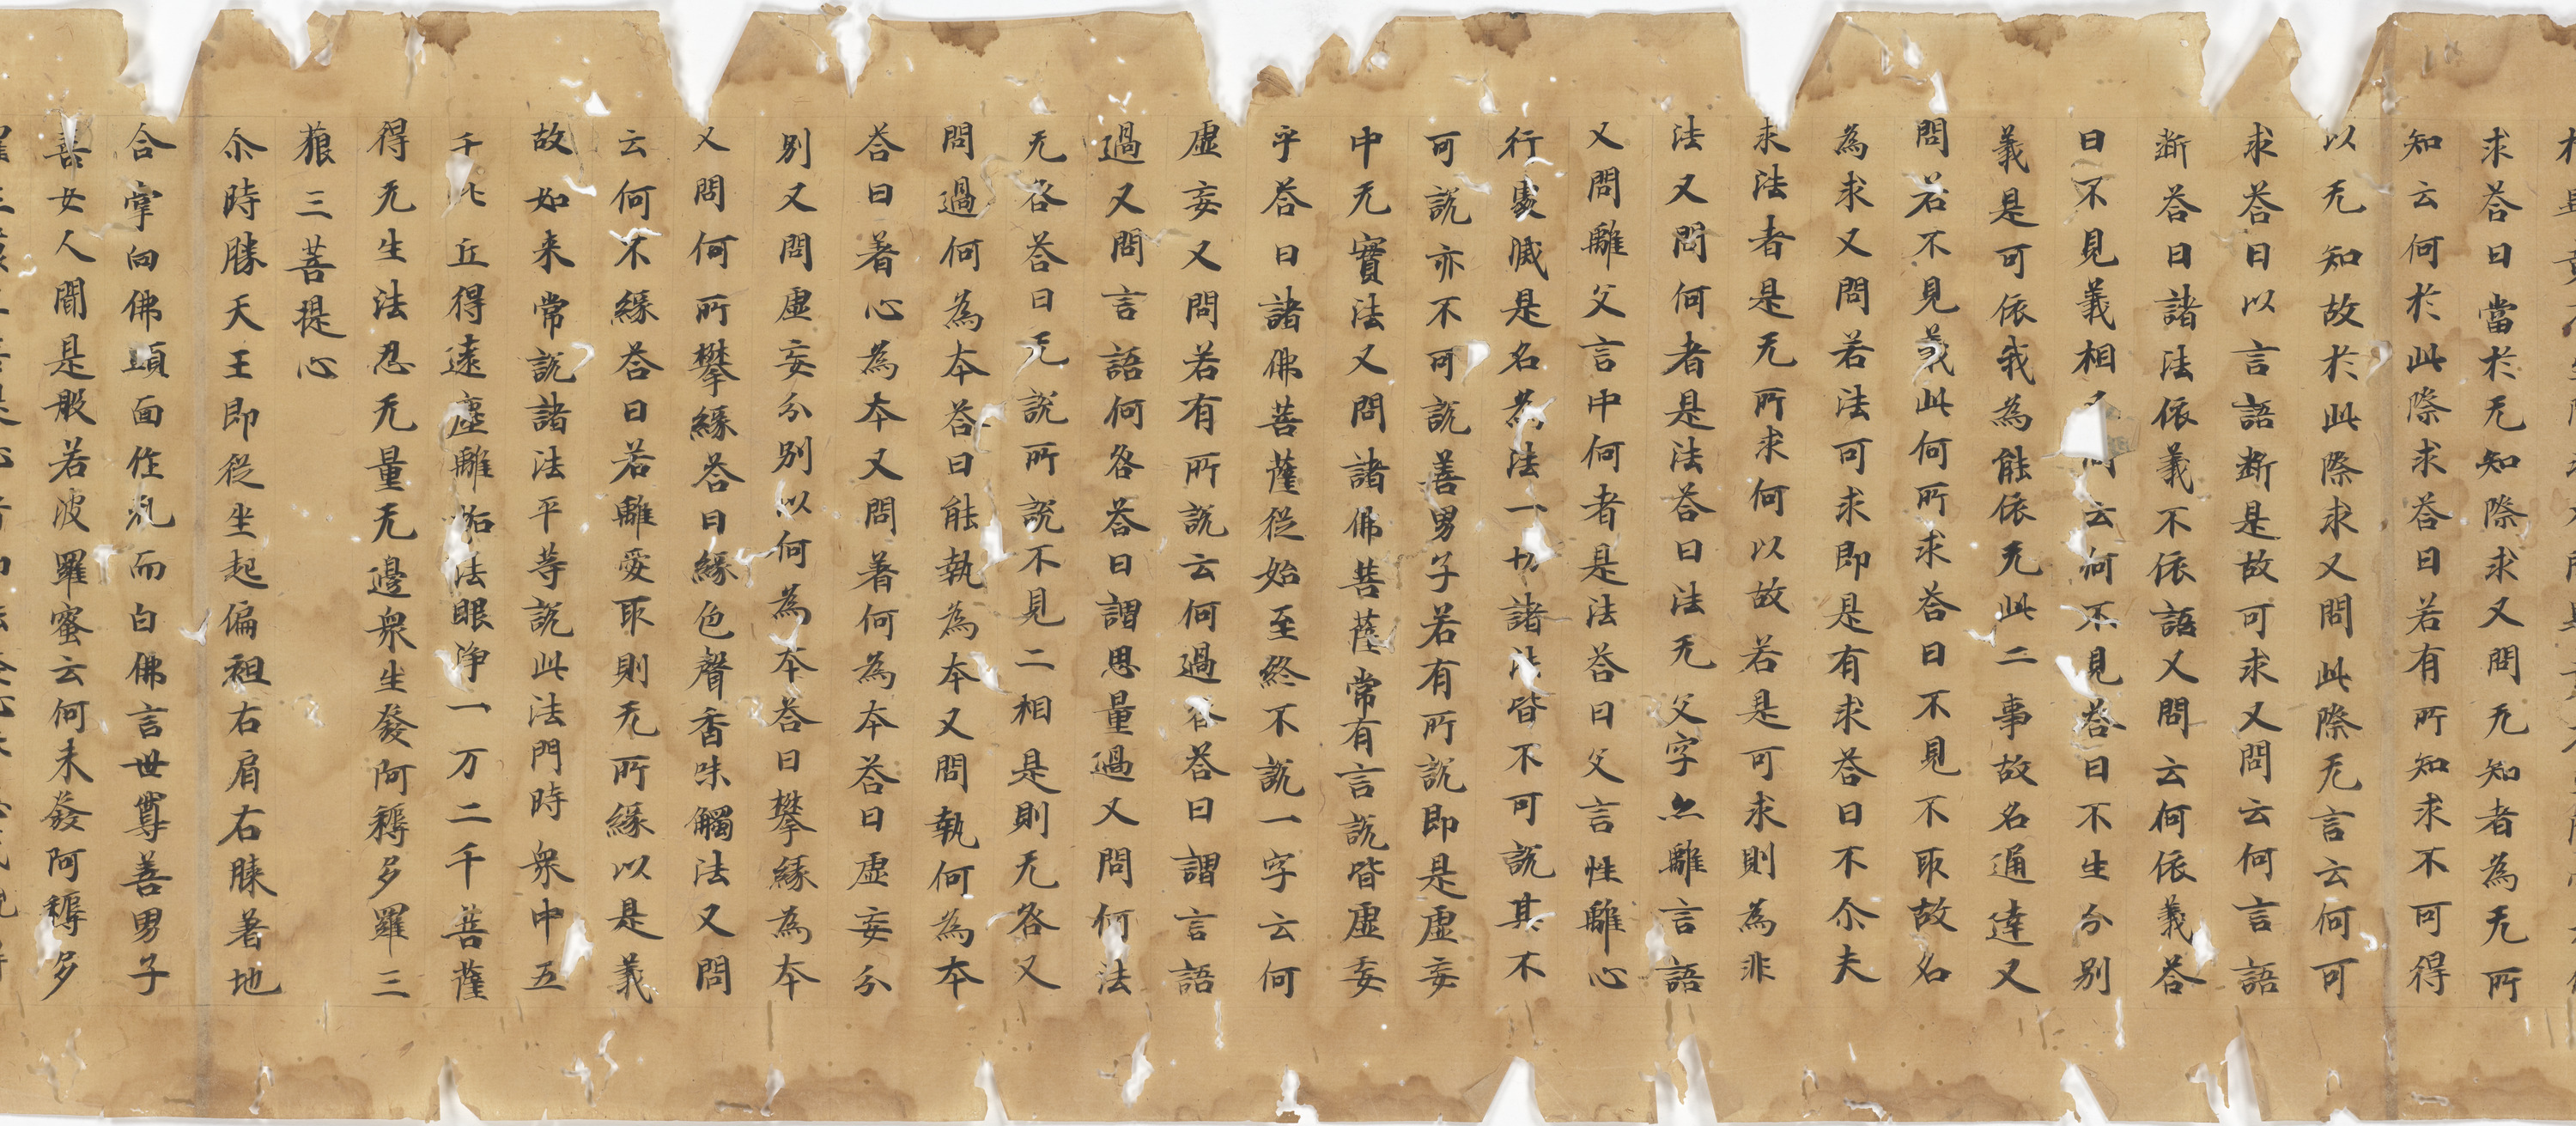 求荅曰當於无知際求又問无知者為无所
知云何於此際求荅曰若有所知求不可得
以无知故於此際求又問此際无言云何可
求荅曰以言語断是故可求又問云何言語
断荅曰諸法依義不依語又問云何依義荅
曰不見義相云何不見荅曰不生分别
義是可依我為能依无此二事故名通達又
問若不見義此何所求荅曰不見不取故名
為求又問若法可求即是有求荅曰不尒夫
求法者是无所求何以故若是可求則為非
法又問何者是法荅曰法无文字亦離言語
又問離文言中何者是法荅曰文言性離心
行處滅是名為法一切諸法皆不可說其不
可說亦不可說善男子若有所說即是虛妄
中无實法又問諸佛菩薩常有言說皆虛妄
乎荅曰諸佛菩薩從始至終不說一字云何
虛妄又問若有所說云何過咎荅曰謂言語
過又問言語何咎荅曰謂思量過又問何法
无咎荅曰无說所說不見二相是則无咎又
問過何為本荅曰能執為本又問執何為本
荅曰著心為本又問著何為本荅曰虛妄分
别又問虛妄分别以何為本荅曰攀緣為本
又問何所攀緣荅曰緣色聲香味觸法又問
云何不緣荅曰若離愛取則无所緣以是義
故如来常說諸法平等說此法門時衆中五
千比丘得遠塵離垢法眼浄一万二千菩薩
得无生法忍无量无邊衆生發阿耨多羅三
藐三菩提心
尒時勝天王即從坐起偏袒右肩右膝著地
合掌向佛頭面作礼而白佛言世尊善男子
善女人聞是般若波羅蜜云何未發阿耨多